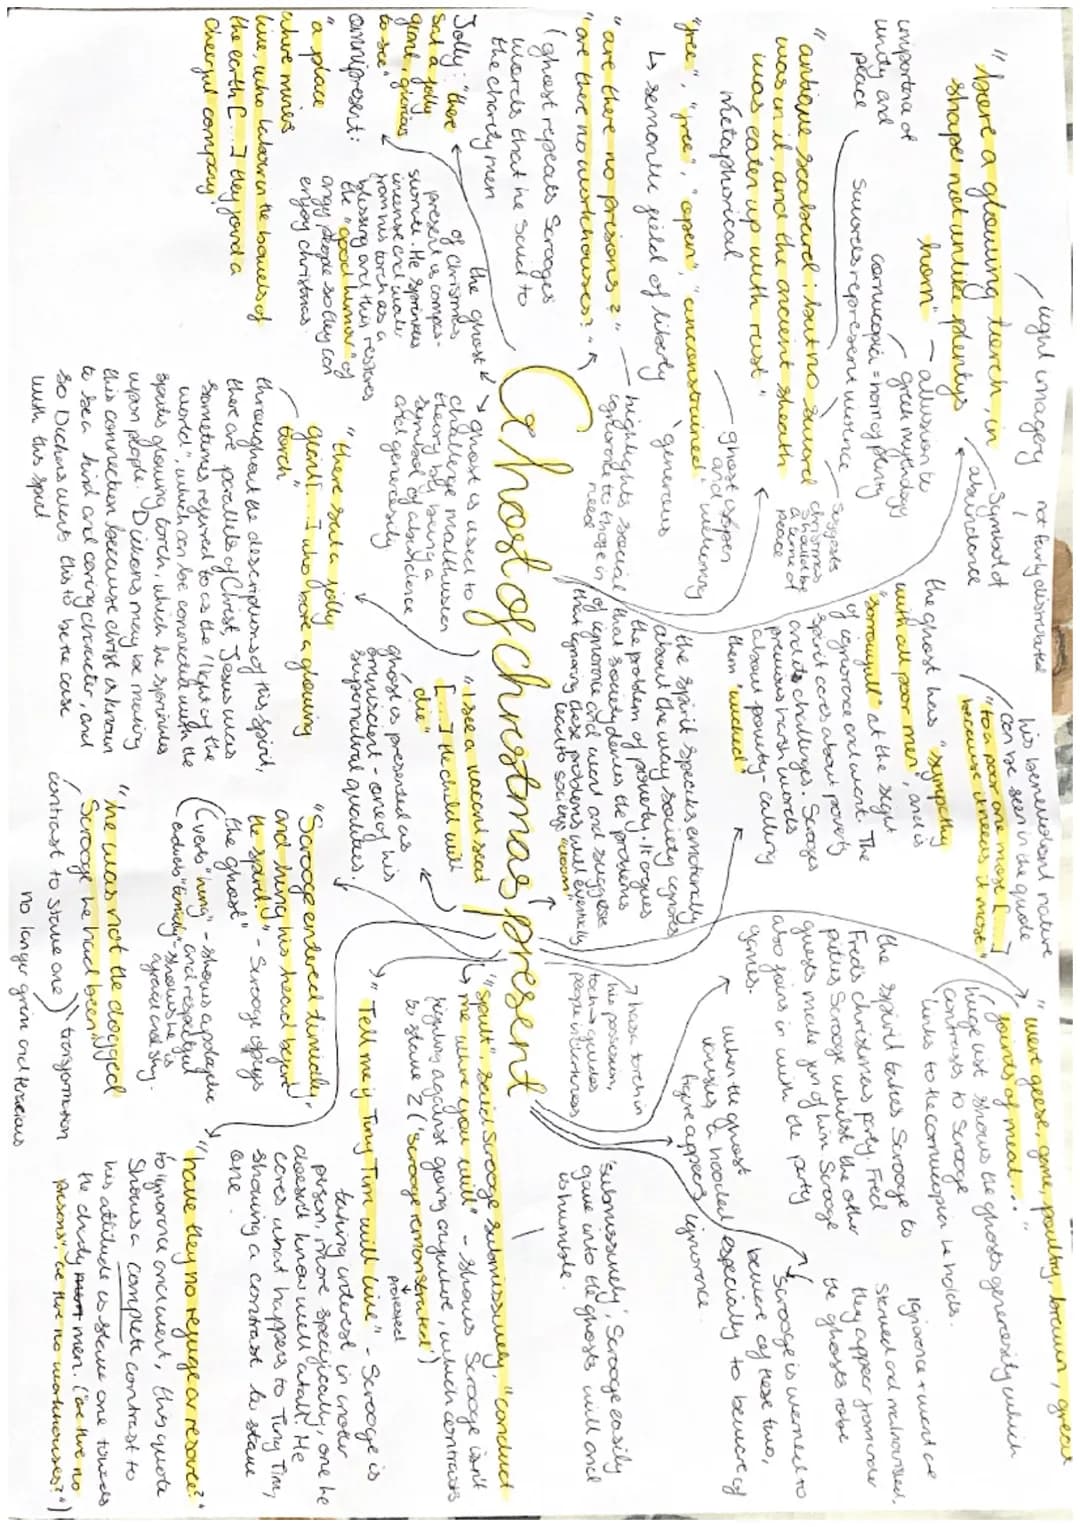 Ghost of christmas present
"bore a glowing torch, in
shape not unlike plenty's
horn"
light imagery
allusion to
greek mythology
cornucopia = horn of plenty
Symbol of
abundance
not fairly distributed
importance of
unity and
peace
Swords represent violence
"antique scabbard; but no sword
was in it and the ancient sheath
was eaten up with rust"
metaphorical
suggests
christmas
should be
a time of
peace
"free", "free", "open", "unconstrained"
↳ semantic field of liberty
ghost is open
and welcoming
generous
"are there no prisons?"
"are there no workhouses?"
(ghost repeats Scrooges
words that he said to
the charity men
highlights social
ignorance to those in
need
Jolly: "there
sat a jolly
giant, glorious
to see"
omnipresent:
"a place
where miners
live who labour in the bowels of
the earth [...] they found a
cheerful company"
the ghost
of christmas
present is compas-
sionate. He sprinkles
incense and water
from his torch as a
blessing and this restores
the "good humor" of
angry people so they can
enjoy christmas
ghost is used to
challenge malthusian
theory by being a
symbol of abundance
and generosity
"there sat a jolly
giant [...] who bore a glowing
torch"
throughout the description of this spirit,
there are parallels of Christ, Jesus was
sometimes referred to as the 'light of the
world', which can be connected with the
spirits glowing torch, which he sprinkles
upon people. Dickens may be making
this connection because christ is known
to be a kind and caring character, and
so Dickens wants this to be the case
with this spirit
his benevolent nature
can be seen in the quote
"to a poor one most [...]
because it needs it most"
the ghost has "sympathy
with all poor men", and is
"sorrowful" at the sight
of ignorance and want. The
spirit cares about poverty
and its challenges. Scrooges
previous harsh words
about poverty - calling
them 'wicked'
the spirit speaks emotionally
about the way society ignores
the problem of poverty. It argues
that society denies the problems
of ignorance and want and suggests
that ignoring these problems will eventually
lead to societys "doom"
"I see a vacant seat
[...] the child will
die"
ghost is presented as
omniscient - one of his
supernatural qualities.
"Scrooge entered timidly,
and hung his head before
the spirit." - Scrooge obeys
the ghost"
(verb "hung" - shows apologetic
and respectful
adverb "timidly" - shows he is
afraid and shy.
"he was not the dogged
Scrooge he had been"
contrast to Stave one
transformation
no longer grim and tenacious
"were geese, game, poultry, brawn, great
joints of meat..."
(huge list shows the ghosts generosity which
contrasts to Scrooge
links to the cornucopia he holds.
the spirit takes Scrooge to
Fred's christmas party, Fred
pities Scrooge whilst the other
guests make fun of him. Scrooge
also joins in with the party
games.
ignorance + want are
starved and malnourished,
they appear from under
the ghosts robe
has a torch in
his possession,
torches guides
people in darkness
when the ghost
vanishes a hooded
figure appears
Scrooge is warned to
beware of these two,
especially to beware of
ignorance.
'submissively', Scrooge easily
gave into the ghosts will and
is humble.
"Spirit" said Scrooge submissively, "conduct
me where you will" - shows Scrooge isn't
fighting against going anywhere, which contrasts
to stave 2 ('Scrooge remonstrated')
protested
"Tell me if Tiny Tim will live" - Scrooge is
taking interest in another
person, more specifically, one he
doesn't know well at all. He
cares what happens to Tiny Tim,
showing a contrast to stave
one.
"have they no refuge or resource?"
to ignorance and want, this quote
shows a complete contrast to
his attitude in stave one towards
the charity men. ("are there no
prisons", "are there no workhouses?")